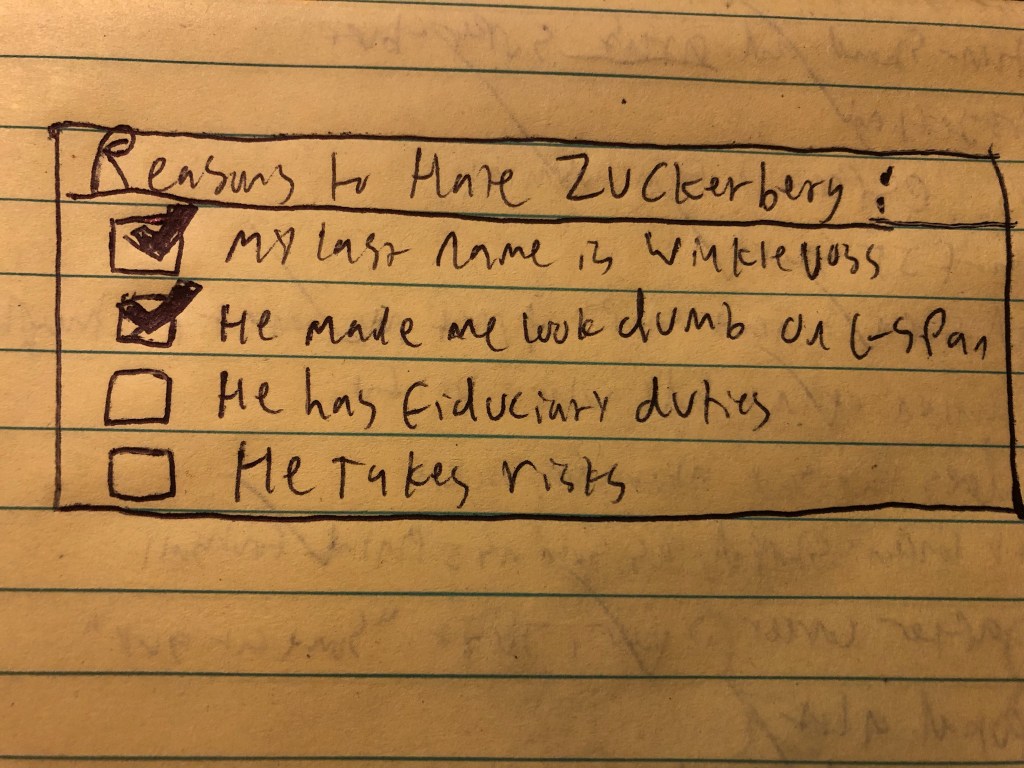 Reasons to Hate Zuckerberg:
My last name is Winklevoss
He made me look dumb on C-Span
He has fiduciary duties
He Takes risks